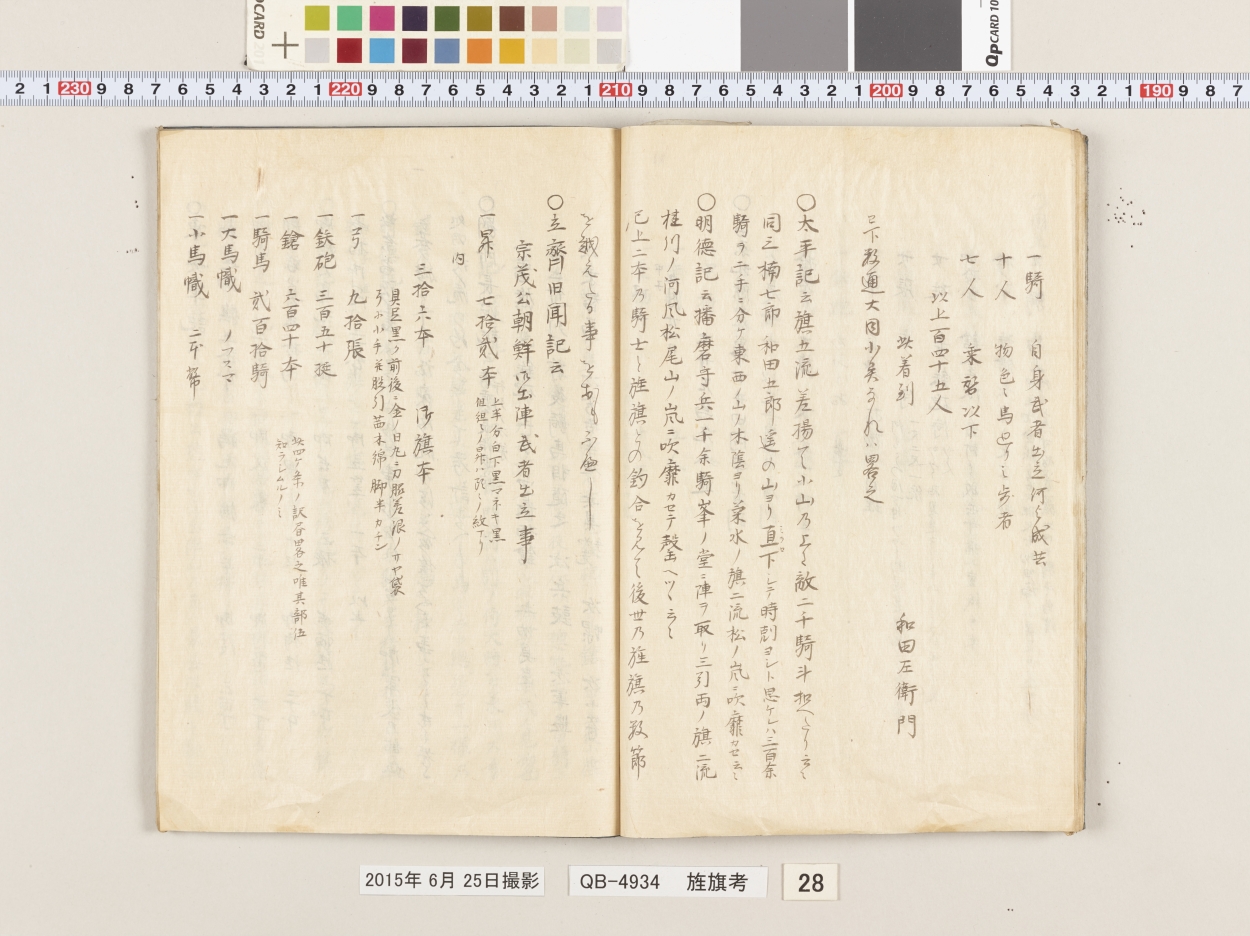 一騎 自身武者出立何も成共
十人 物色々馬廻り之歩者
七人 乗替以下
以上百四十五人
此着到 和田左衛門
已下数通大同小異なれハ畧之
○太平記云旗五流差揚て小山乃上に敵二千騎斗扣へたり云々
同云楠七郎和田五郎遙の山ヨリ直下シテ時剋ヨシト思ケレハ三百余
騎ヲ二手ニ分ケ東西ノ山ノ木陰ヨリ菊水ノ旗二流松ノ嵐ニ吹靡カセ云々
○明徳記云播磨守兵一千余騎峯ノ堂ニ陣ヲ取リ三引両ノ旗二流
桂川ノ河風松尾山ノ嵐ニ吹靡カセテ 云々
已上二本乃騎士と旌旗との釣合を見て後世乃旌旗乃数節
を 事をおもふ
○立齊旧聞記云
宗茂公朝鮮御出陣武者出立事
一昇 七拾貳本 上半分白下黒マネキ黒
内
三拾六本 御旗本
具足黒ク前後ニ金ノ日丸 刀脇差銀ノサヤ袋
小手 股引 木綿 脚半カチン
一弓 九拾張
一鉄砲 三百五十挺
一鎗 六百四十本
一騎馬 貳百拾騎
一大馬幟
一小馬幟
此四ケ条ノ 畧之唯其部伍
知ラシムルノミ
2015年 6月 25日撮影
QB-4934 旌旗考
28
2 1 230 9 8 7 6 5 4 3 2 1 220 9 8 7 6 5 4 3 2 1 210 9 8 7 6 5 4 3 2 1 200 9 8 7 6 5 4 3 2 1 190 9 8 7
QPCARD 10